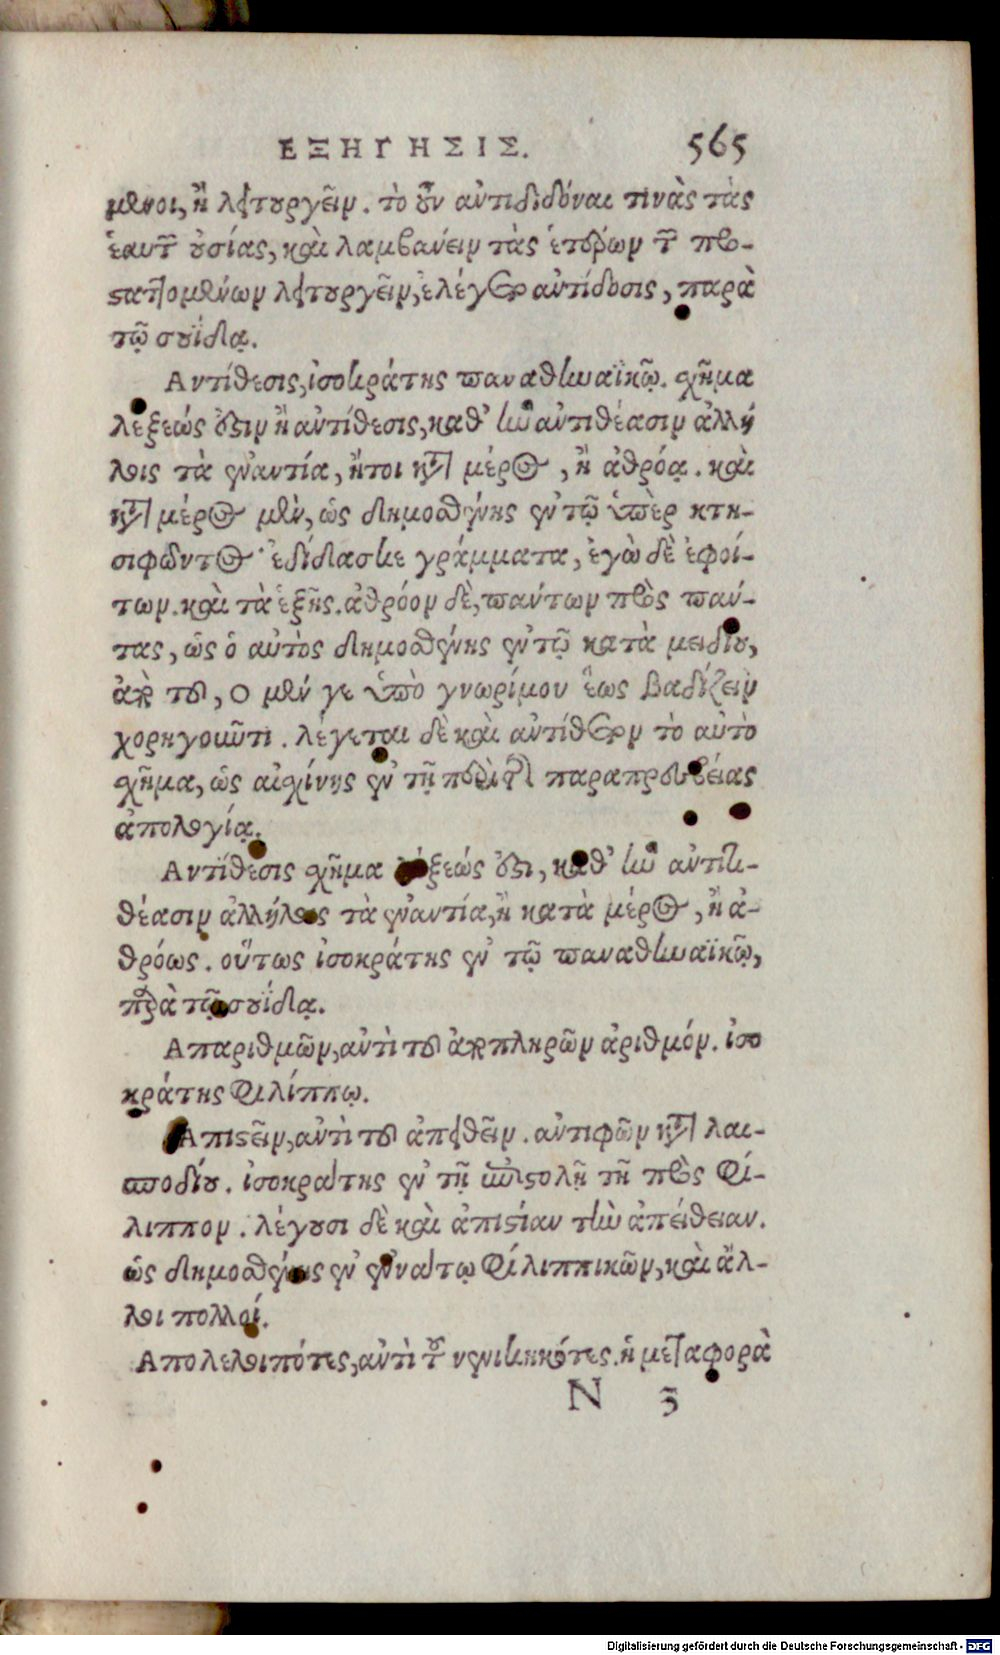 ΕΞΗΓΗΣΙΣ. 565
μενοι, ἢ λειτουργεῖν. τὸ οὖν ἀντιδιδόναι τινὰς τὰς
ἑαυτῶν οὐσίας, καὶ λαμβάνειν τὰς ἑτέρων τῶν προ-
σταττομένων λειτουργεῖν, ἐλέγετο ἀντίδοσις, παρὰ
τῷ σουΐδᾳ.
Αντίθεσις, ἰσοκράτης παναθηναϊκῷ. σχῆμα
λέξεώς ἐστιν ἡ ἀντίθεσις, καθ᾽ ἣν ἀντιτιθέασιν ἀλλή
λοις τὰ ἐναντία, ἤτοι κατὰ μέρος, ἢ ἀθρόᾳ. καὶ
κατὰ μέρος μὲν, ὡς δημοσθένης ἐν τῷ ὑπὲρ κτη-
σιφῶντος· ἐδίδασκε γράμματα, ἐγὼ δὲ ἐφοί-
των. καὶ τὰ ἑξῆς. ἀθρόον δὲ, πάντων πρὸς πάν-
τας, ὡς ὁ αὐτὸς δημοσθένης ἐν τῷ κατὰ μειδίου,
ἀπὸ τοῦ, ὁ μέν γε ὑπὸ γνωρίμου ἕως βαδίζειν
χορηγοῦντι. λέγεται δὲ καὶ ἀντίθετον τὸ αὐτὸ
σχῆμα, ὡς αἰσχίνης ἐν τῇ περὶ τῆς παραπρεσβείας
ἀπολογίᾳ.
Αντίθεσις σχῆμα λέξεώς ἐστι, καθ᾽ ἣν ἀντιτι-
θέασιν ἀλλήλοις τὰ ἐναντία, ἢ κατὰ μέρος, ἢ ἀ-
θρόως. οὕτως ἰσοκράτης ἐν τῷ παναθηναϊκῷ,
παρὰ τῷ σουΐδᾳ.
Απαριθμῶν, ἀντὶ τοῦ ἀποπληρῶν ἀριθμόν. ἰσο
κράτης Φιλίππῳ.
Απιστεῖν, ἀντὶ τοῦ ἀπειθεῖν. ἀντιφῶν κατὰ λαι-
σποδίου. ἰσοκράτης ἐν τῇ ἐπιστολῇ τῇ πρὸς Φί-
λιππον. λέγουσι δὲ καὶ ἀπιστίαν τὴν ἀπείθειαν.
ὡς δημοσθένης ἐν ἐννάτῳ Φιλιππικῶν, καὶ ἄλ-
λοι πολλοί.
Απολελοιπότες, ἀντὶ τοῦ νενικηκότες. ἡ μεταφορὰ
N 3
Digitalisierung gefördert durch die Deutsche Forschungsgemeinschaft - DFG